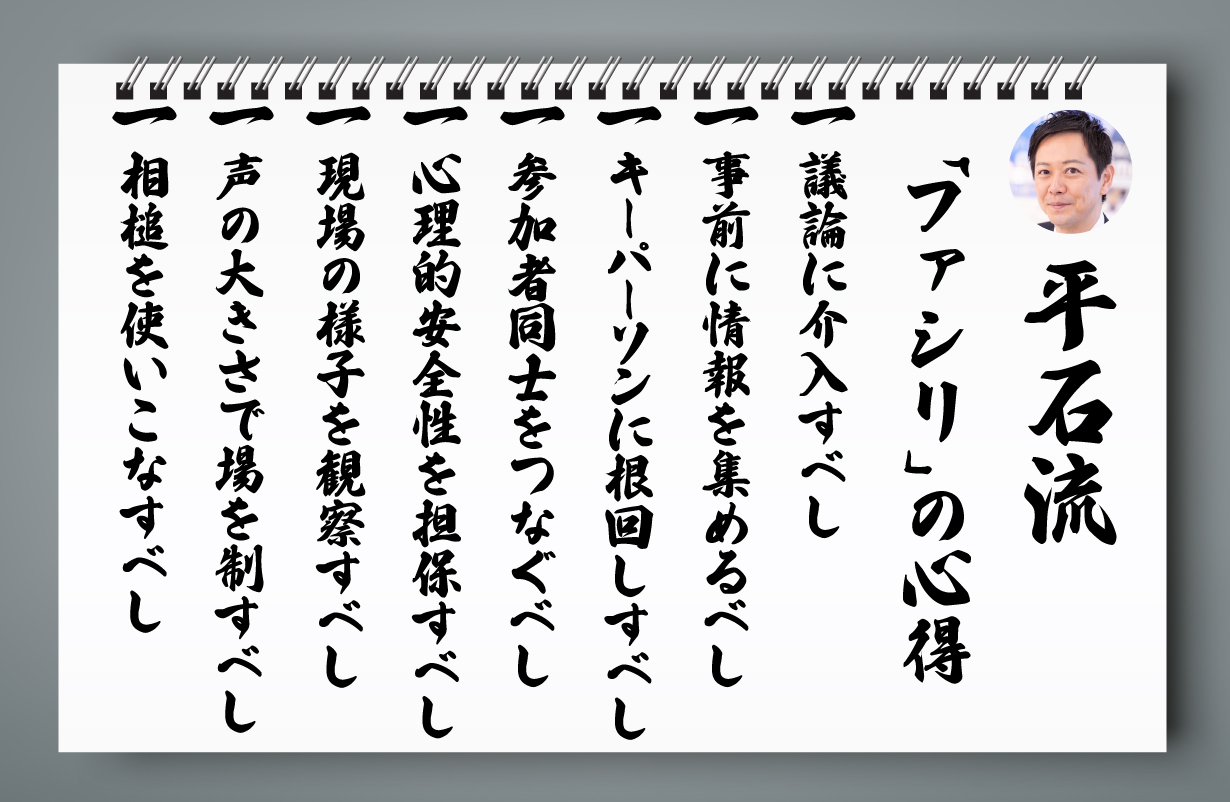 平石流
「ファシリ」の心得
一 議論に介入すべし
一 事前に情報を集めるべし
一 キーパーソンに根回しすべし
一 参加者同士をつなぐべし
一 心理的安全性を担保すべし
一 現場の様子を観察すべし
一 声の大きさで場を制すべし
一 相槌を使いこなすべし